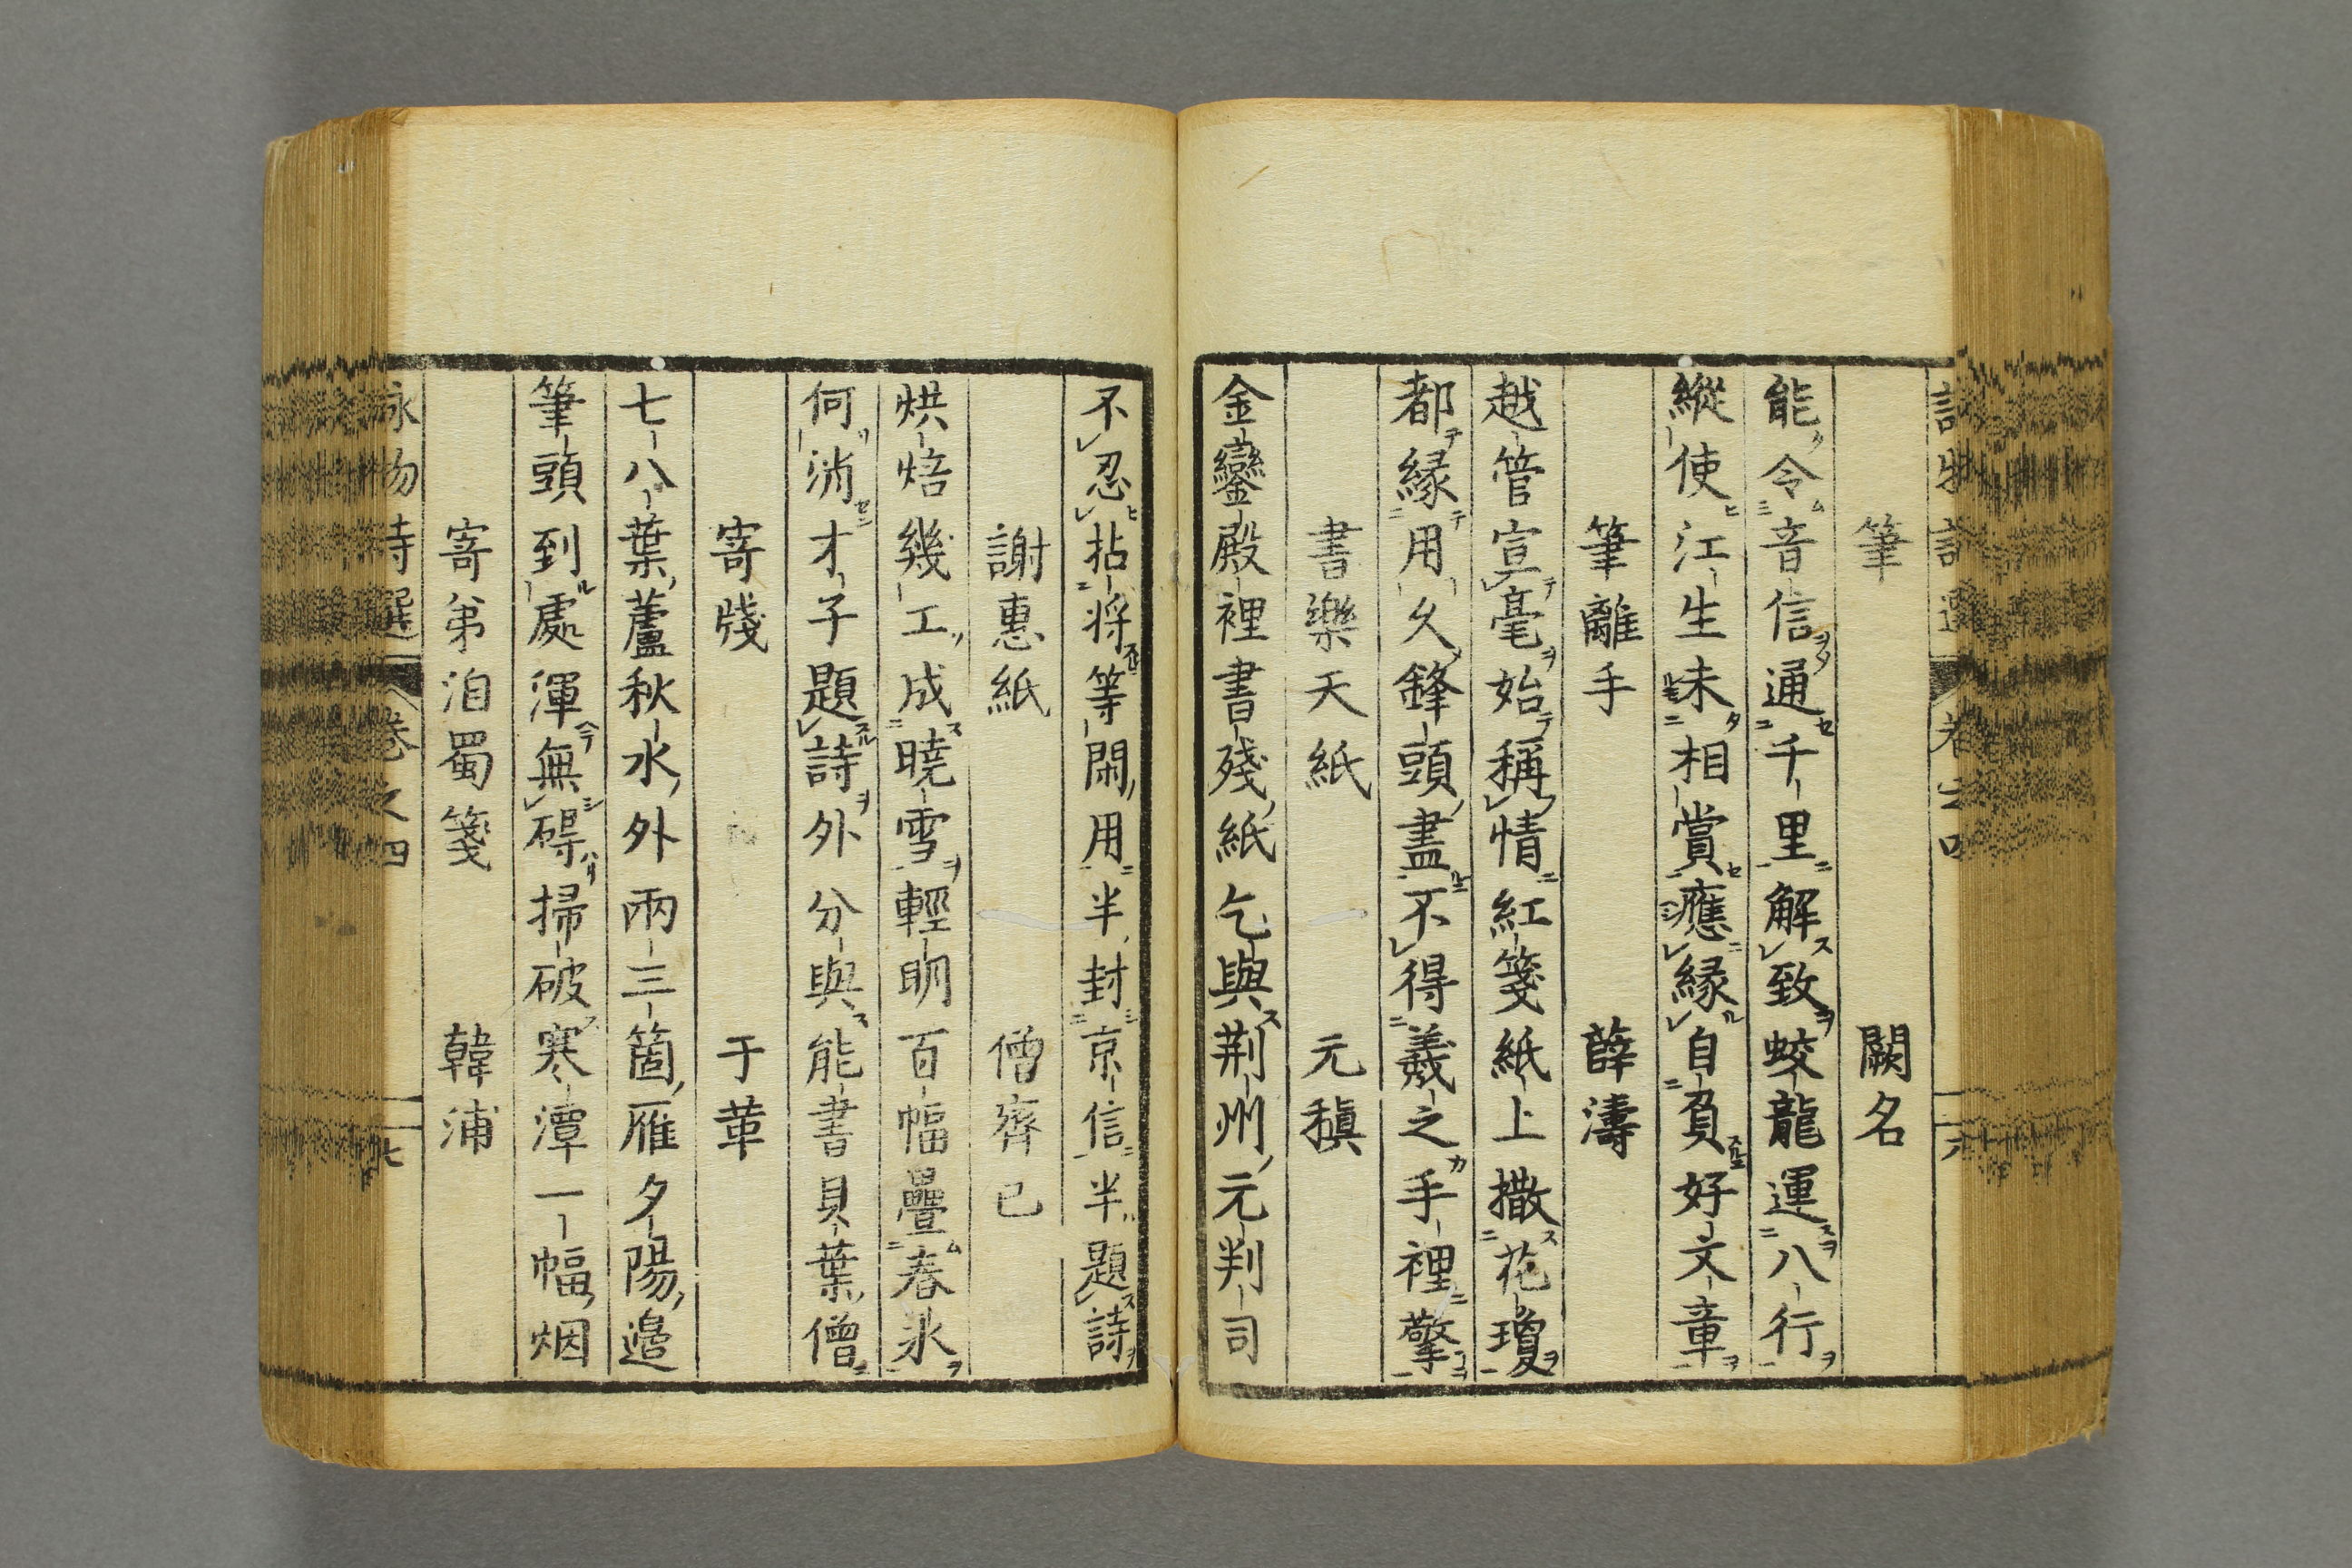 筆　闕名
能令音信通千里解致蛟龍運八行
縱使江生未相賞應縁自負好文章
筆離手　薛濤
越管宣毫始稱情紅箋紙上撒花瓊
都縁用久鋒頭盡不得羲之手裡擎
書樂天紙　元稹
金鑾殿裡書殘紙乞與荆州元判司
不忍拈将等閑用半封京信半題詩
謝惠紙　僧齊己
烘焙幾工成曉雪輕明百幅疊春氷
何消才子題詩外分與能書貝葉僧
寄牋　于革
七八葉蘆秋水外兩三箇雁夕陽邉
筆頭到處渾無碍掃破寒潭一幅烟
寄弟洎蜀箋　韓浦
詠物詩選　卷之四　七